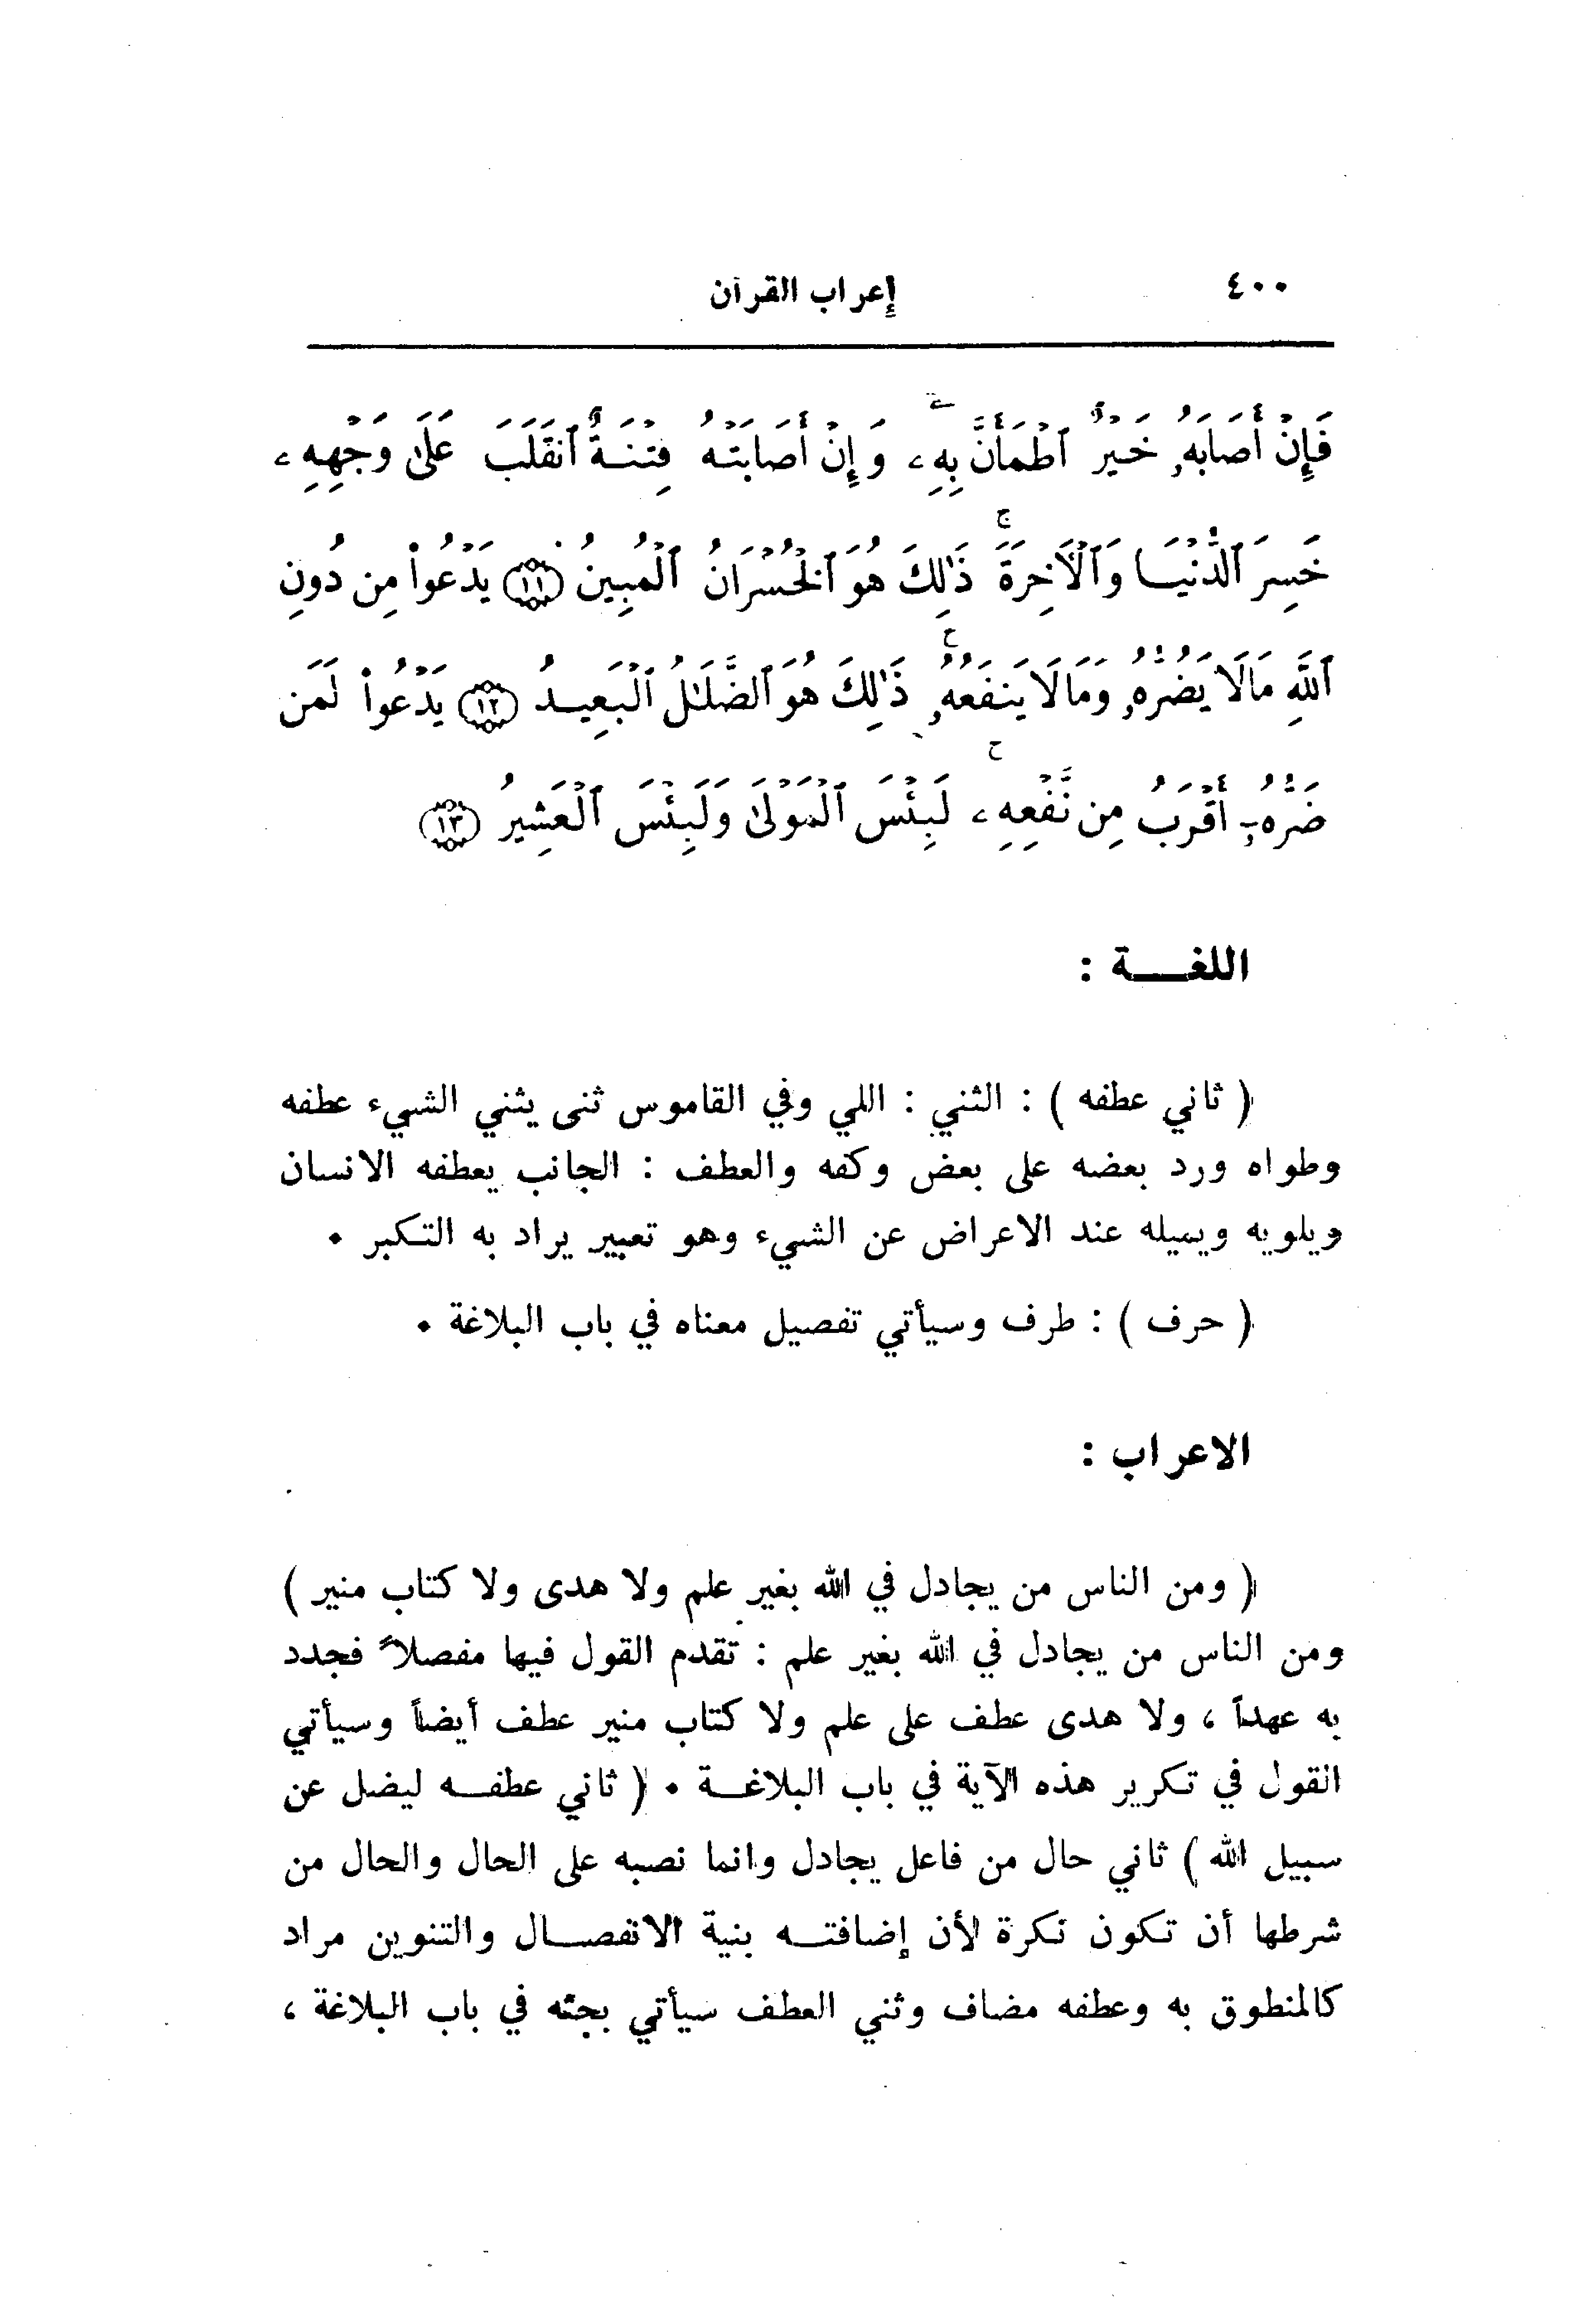 ٤٠٠
إعراب القرآن
فَإِنْ أَصَابَهُۥ خَيْرٌ ٱطْمَأَنَّ بِهِۦ ۖ وَإِنْ أَصَابَتْهُ فِتْنَةٌ ٱنقَلَبَ عَلَىٰ وَجْهِهِۦ
خَسِرَ ٱلدُّنْيَا وَٱلْآخِرَةَ ۚ ذَٰلِكَ هُوَ ٱلْخُسْرَانُ ٱلْمُبِينُ ﴿١١﴾ يَدْعُوا۟ مِن دُونِ
ٱللَّهِ مَا لَا يَضُرُّهُۥ وَمَا لَا يَنفَعُهُۥ ۚ ذَٰلِكَ هُوَ ٱلضَّلَٰلُ ٱلْبَعِيدُ ﴿١٢﴾ يَدْعُوا۟ لَمَن
ضَرُّهُۥٓ أَقْرَبُ مِن نَّفْعِهِۦ ۚ لَبِئْسَ ٱلْمَوْلَىٰ وَلَبِئْسَ ٱلْعَشِيرُ ﴿١٣﴾
اللغـــة :
( ثاني عطفه ) : الثني : اللي وفي القاموس ثنى يثني الشيء عطفه
وطواه ورد بعضه على بعض وكفه والعطف : الجانب يعطفه الانسان
ويلويه ويميله عند الاعراض عن الشيء وهو تعبير يراد به التكبر •
( حرف ) : طرف وسيأتي تفصيل معناه في باب البلاغة •
الاعراب :
( ومن الناس من يجادل في الله بغير علم ولا هدى ولا كتاب منير )
ومن الناس من يجادل في الله بغير علم : تقدم القول فيها مفصلاً فجدد
به عهداً ، ولا هدى عطف على علم ولا كتاب منير عطف أيضاً وسيأتي
القول في تكرير هذه الآية في باب البلاغـــة • ( ثاني عطفـــه ليضل عن
سبيل الله ) ثاني حال من فاعل يجادل وانما نصبه على الحال والحال من
شرطها أن تكون نكرة لأن إضافتـــه بنية الانفصـــال والتنوين مراد
كالمنطوق به وعطفه مضاف وثني العطف سيأتي بحثه في باب البلاغة ،